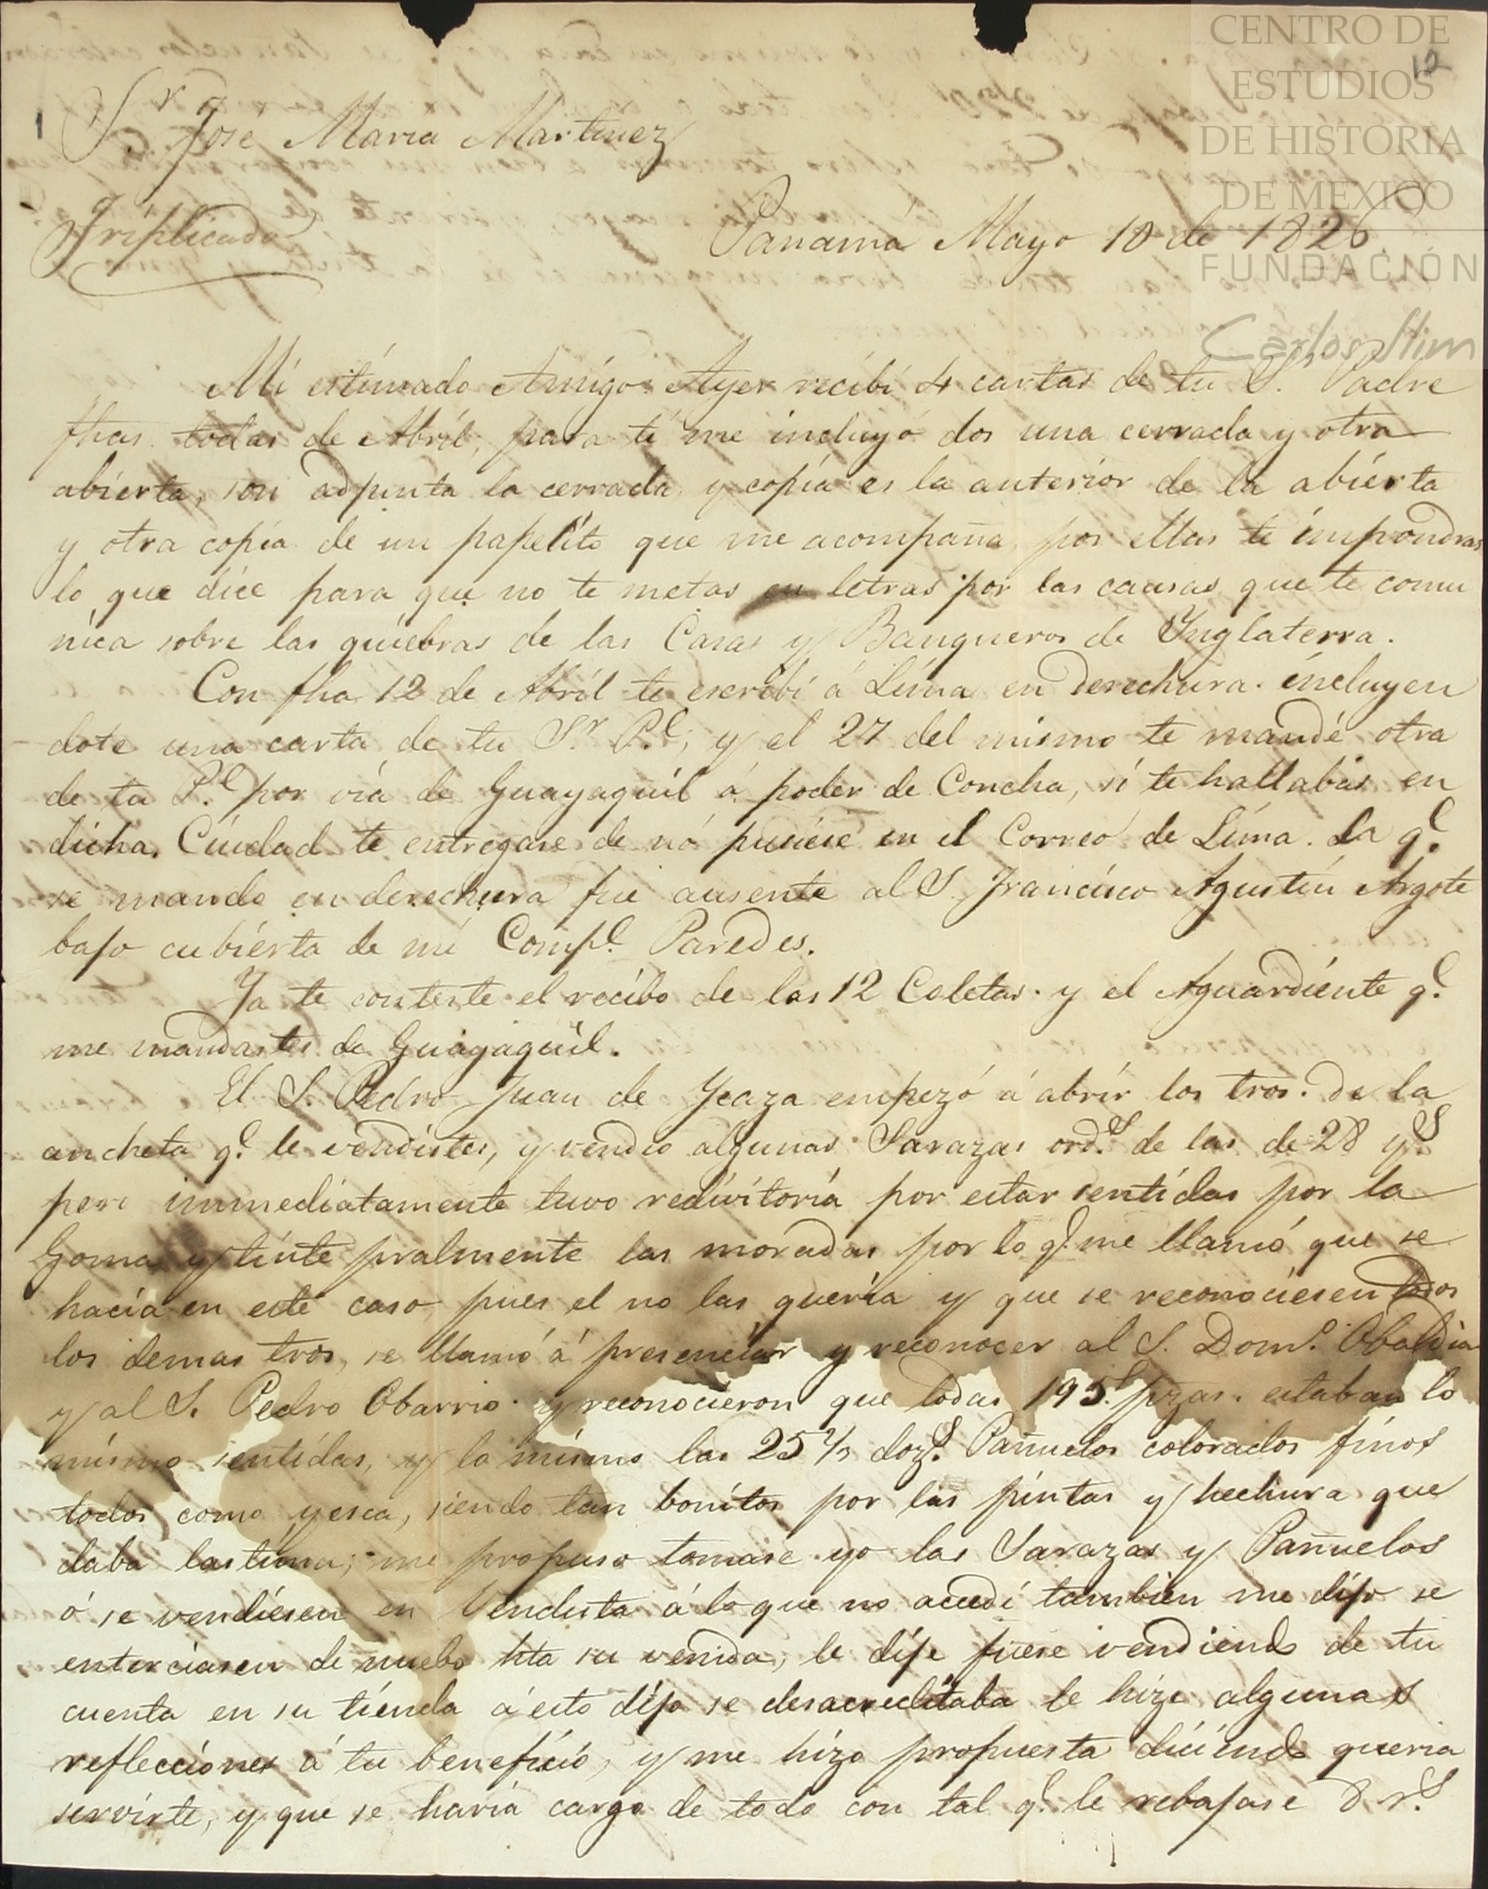 CENTRO DE
ESTUDIOS
DE HISTORIA
DE MEXICO
FUNDACIÓN
Carlos Slim
12
1 Sr. José Maria Martinez
Triplicado
Panamá Mayo 18 de 1826
Mi estimado Amigo: Ayer recibí 4 cartas de tu Sr. Padre
fhas. todas de Abríl, para tí me incluyó dos una cerrada y otra
abierta, son adjunta la cerrada, y copía es la anteríor de la abíerta
y otra copía de un papelíto que me acompaña, por ellas te impondras
lo que díce para que no te metas en letras por las causas que te comu
nica sobre las quíebras de las Casas y Banqueros de Ynglaterra.
Con fha 12 de Abríl te escribí á Líma en derechura incluyen
dote una carta de tu Sr. Pe; y el 27 del mismo te mandé otra
de tu Pe. por vía de Guayaquíl á poder de Concha, sí te hallabas en
dicha Ciudad te entregase de nó pusiese en el Correo de Líma. La qe.
se mando en derechura fue ausente al S. Francisco Agustin Argote
bajo cubíerta de mi Compe. Paredes.
Ya te conteste el recíbo de las 12 Coletas y el Aguardíente qe.
me mandastes de Guayaquíl.
El S. Pedro Juan de Ycaza empezó á abrír los tros. de la
ancheta qe. le vendistes, y vendio algunas Sarazas ords. de las de 28 ys.
pero immediatamente tuvo redivitoría por estar sentídas por la
Goma y tínte pralmente las moradas por lo qe. me llamó que se
hacía en este caso pues el no las quería y que se reconociesen todos
los demas tros, se llamó á presencíar y reconocer al S. Domo. Obaldia
y al S. Pedro Obarrio y reconocieron que todas 195 pzas. estaban lo
mísmo sentídas, y lo mísmo las 25 1/2 dozs. Pañuelos colorados fínos
todos como yesca, siendo tan bonítos por las píntas y hechura que
daba lastíma; me propuso tomase yo las Sarazas y Pañuelos
ó se vendíesen en Venduta á lo que no accedí tambíen me díjo se
entercíasen de nuebo hta su venida, le díje fuese vendíendo de tu
cuenta en su tíenda á esto díjo se desacredítaba le hize algunas
reflecciones á tu benefício, y me hizo propuesta díciendo queria
servirte, y que se haría cargo de todo con tal qe. le rebajase 8 rs.